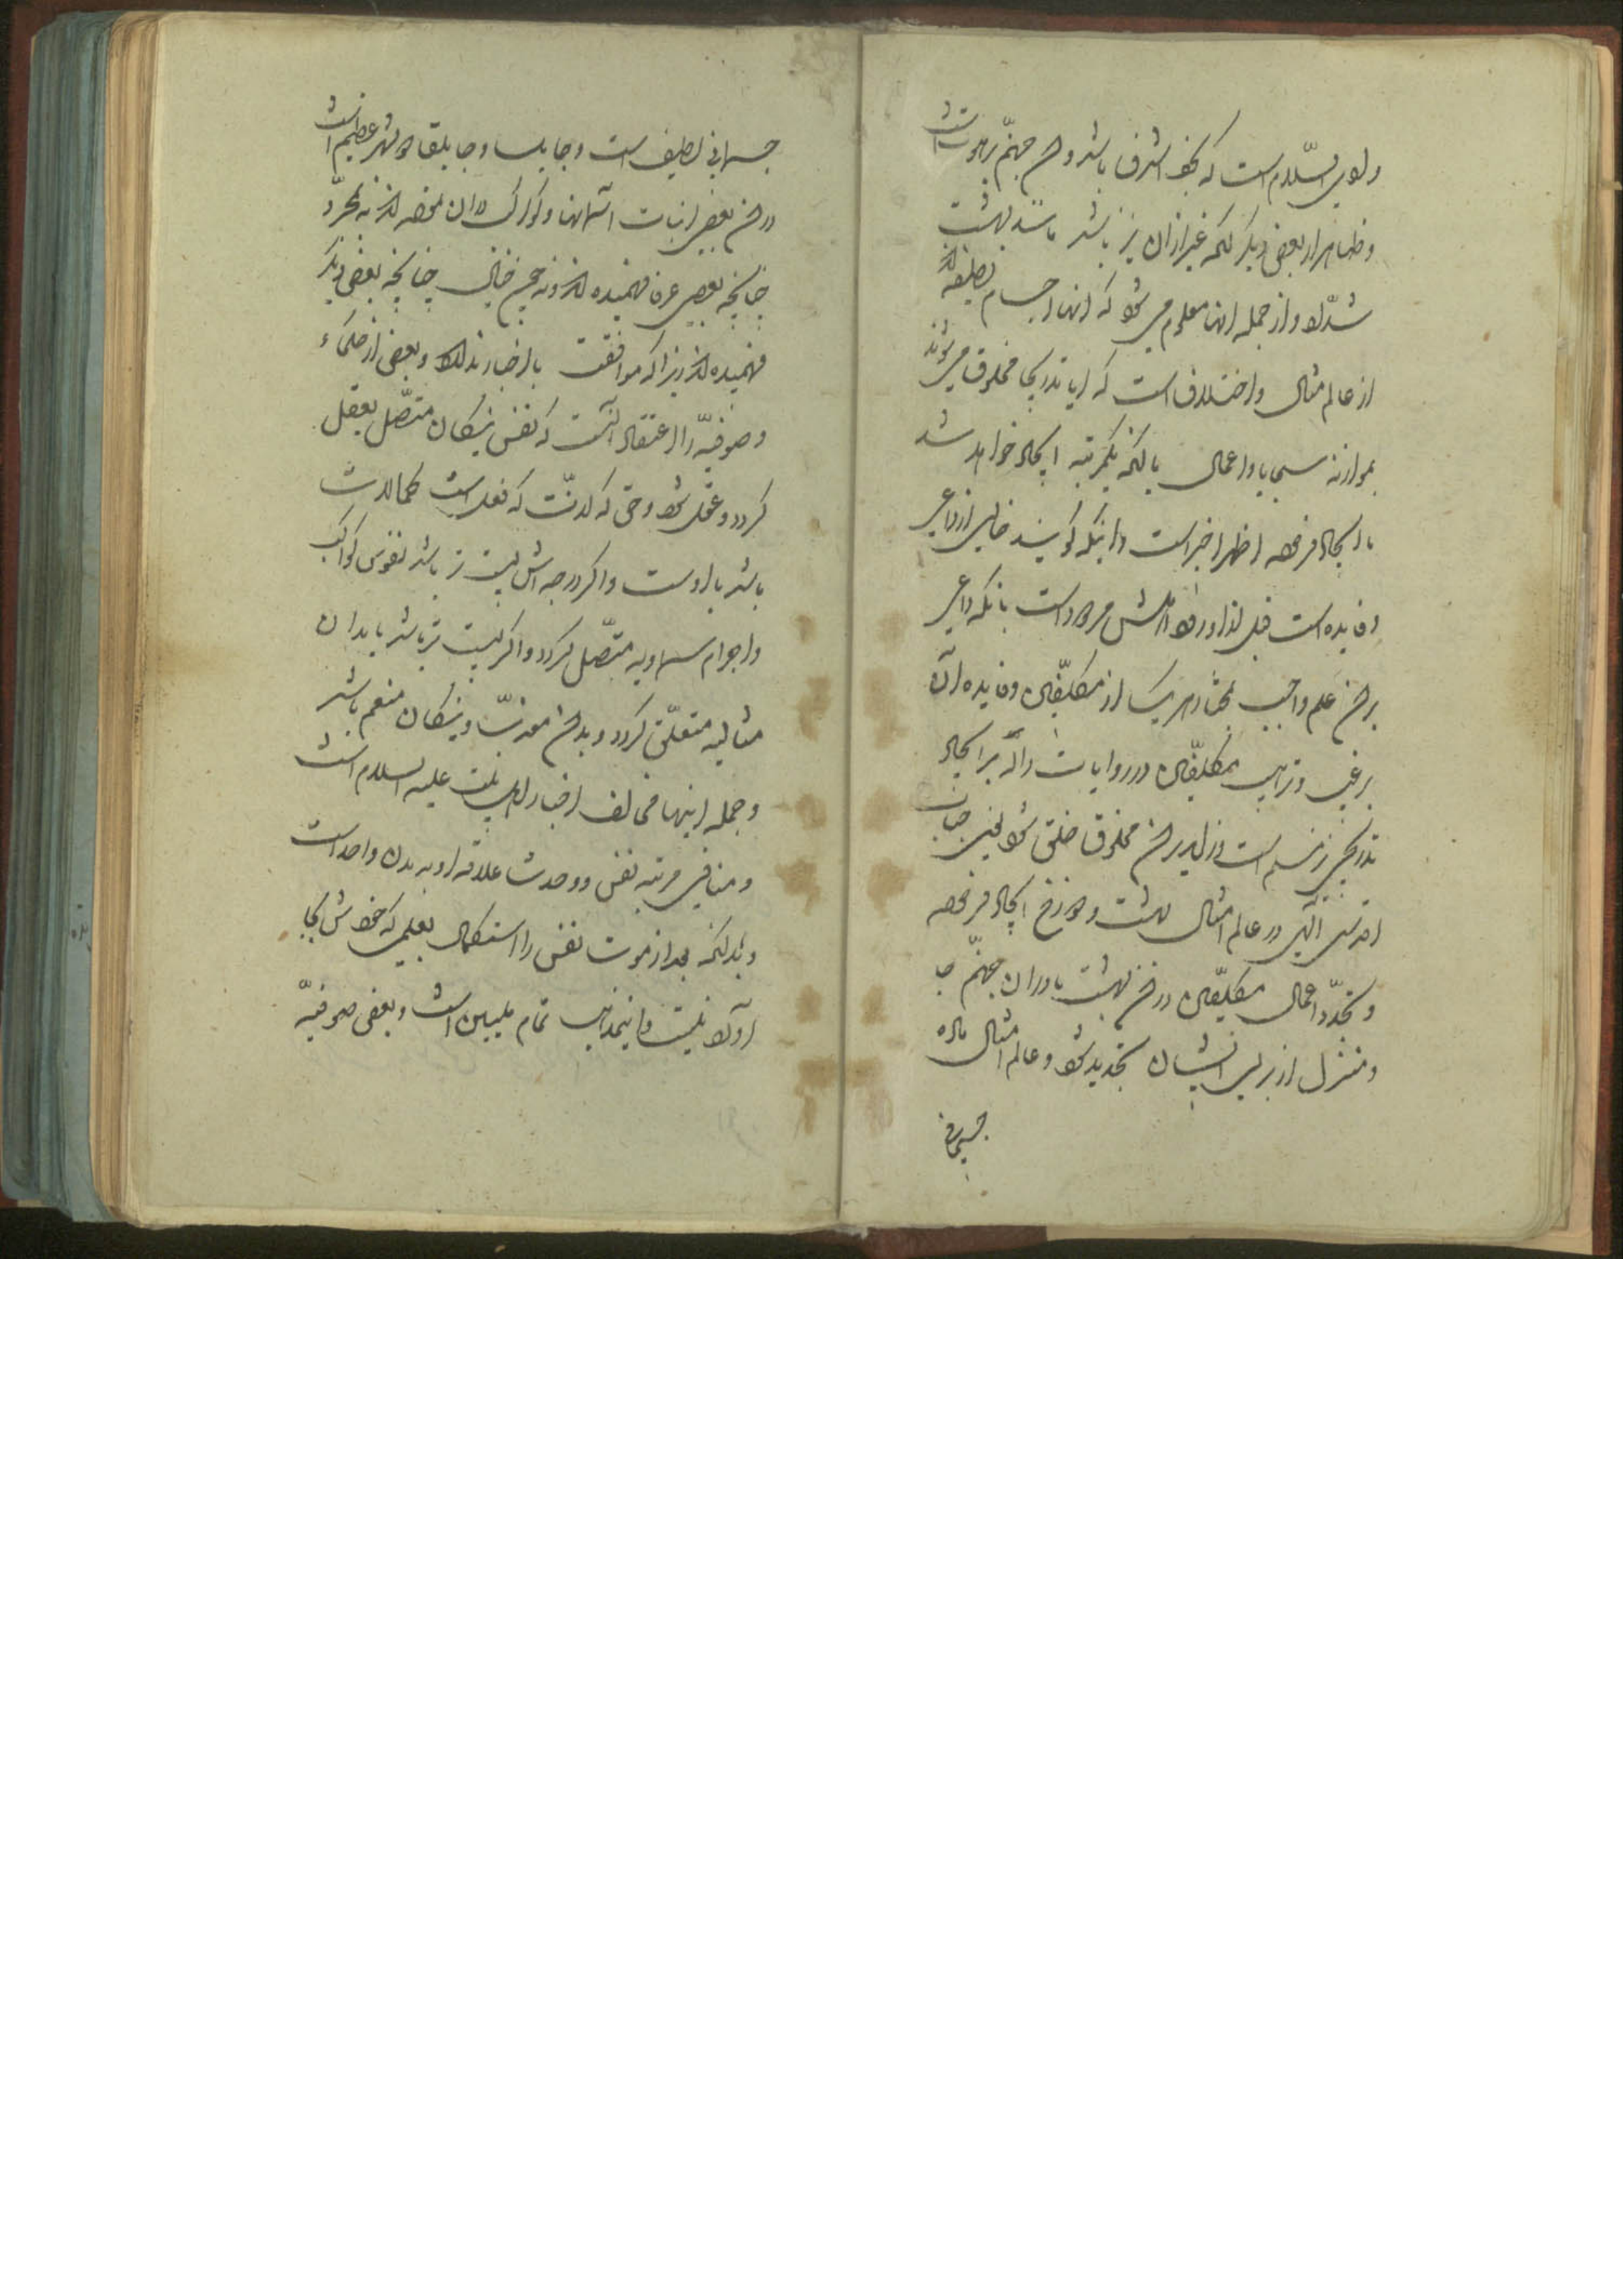 وادی السّلام است که نجف اشرف باشد و جهنّم برهوت است
و ظاهر از بعض دیگر آنکه غیر از آن نیز باشد مانند بهشت
شدّاد و از جمله آنها معلوم می شود که آنها اجسام لطیفه‌اند
از عالم مثال و اختلاف است که آیا تدریجا مخلوق می شوند
بموازنه سجایا و اعمال یا آنکه یکمرتبه ایجاد خواهد شد
یا ایجاد فرموده اظهر اخیر است و اینکه گویند خالی از داعی
و فایده است قبل از ورود اهلش مردود است بآنکه داعی
علم واجب بمآثار هر یک از مکلّفین و فایده آن
ترغیب و ترهیب مکلّفین و روایات داله بر ایجاد
تدریجی
اقدس الهی در عالم مثال بهشت و دوزخ ایجاد فرموده
و بتجدّد اعمال مکلّفین در بهشت یا در آن جهنّم جا
و منزل از برای ایشان تجدید شود و عالم مثال ماده
جسمانی
جسمانی لطیف است و جابلسا و جابلقا دو شهر عظیم است
در بعضی اثبات آسمانها و کواکب در آن نموده‌اند نه مجرّد
چنانچه بعضی عرفا فهمیده‌اند و نه محض خیال چنانچه بعضی دیگر
فهمیده‌اند زیرا که موافقت با اخبار ندارد و بعضی از حکماء
و صوفیّه را اعتقاد آنست که نفس نیکان متصّل بعقل
گردد و عقل شود وحتی که لذّت که فعلیت کمالات
باشد با اوست و اگر درجه‌اش پست تر باشد بنفوس کواکب
و اجرام سماویه متصّل گردد و اگر پست تر باشد بابدان
مثالیه متعلّق گردد و بدان معذّب و نیکان منعم باشد
و جمله اینها مخالف اخبار اهل بیت علیه السلام است
و منافی مرتبه نفس و وحدت علاقه او به بدن واحد است
و بدانکه بعد از موت نفس را استکمال بعلمی که خودش بجا
آورد نیست و اینمذهب تمام ملیین است و بعضی صوفیّه